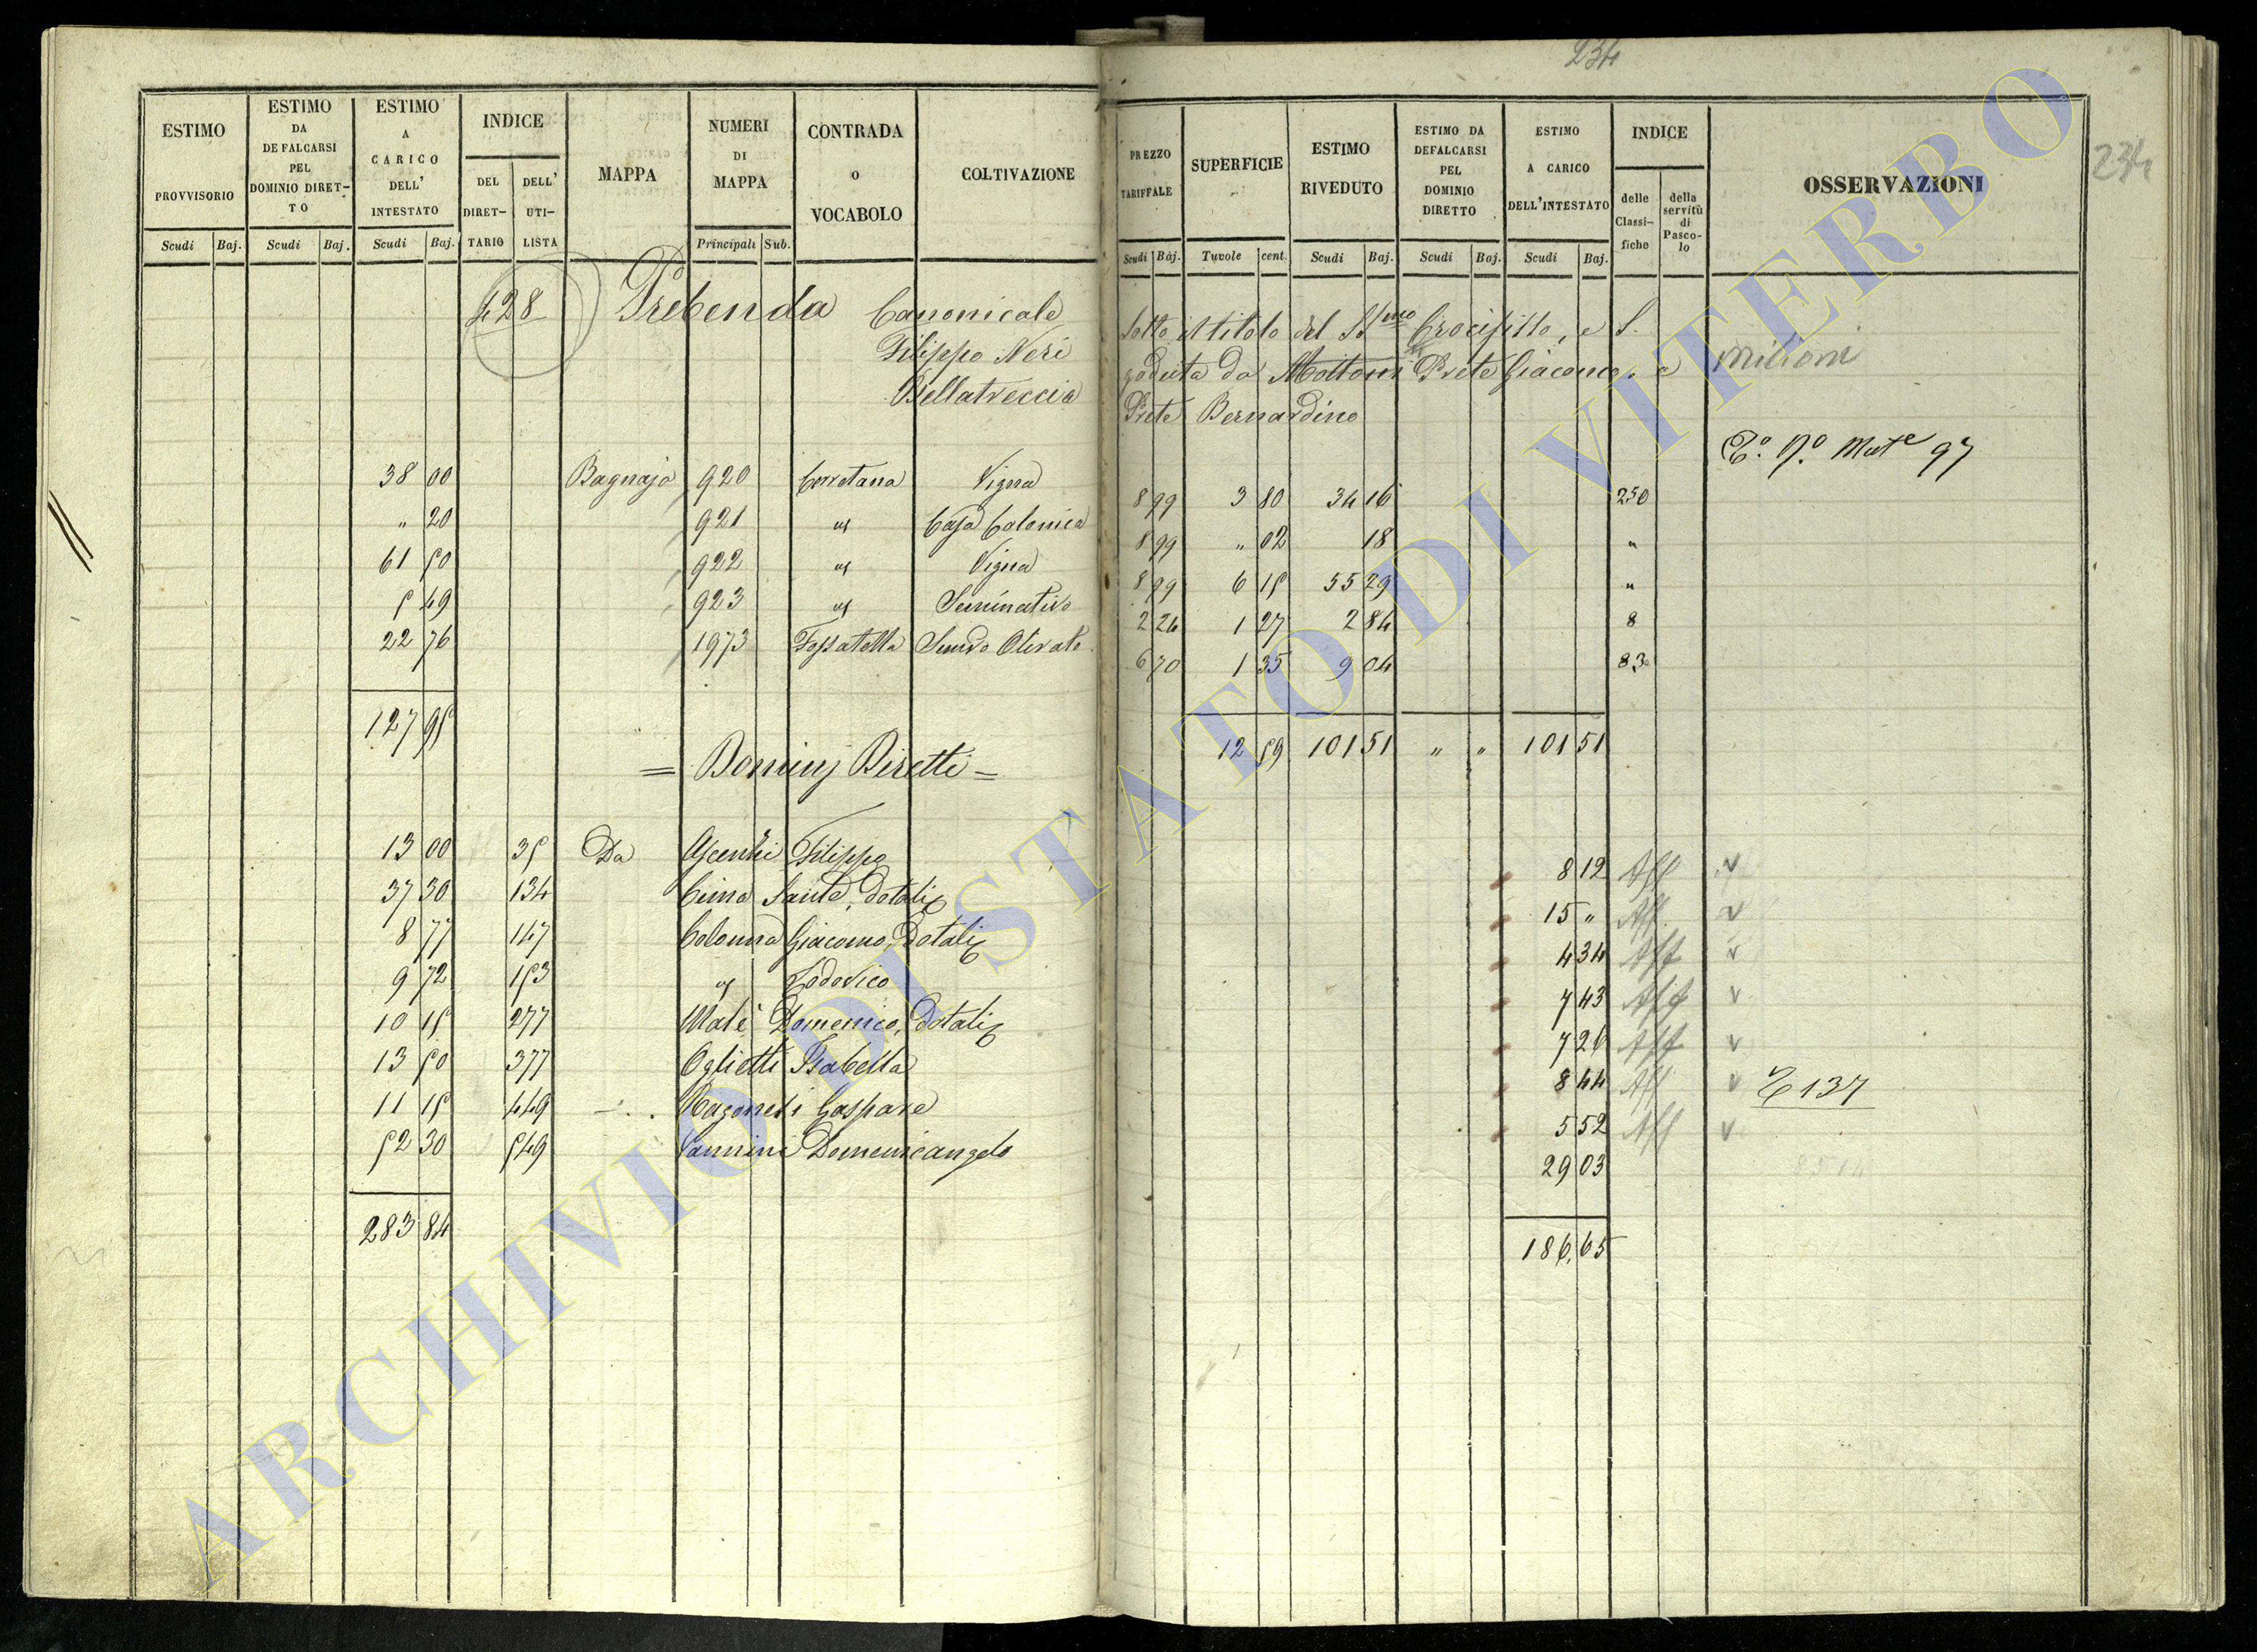 234
234
ESTIMO PROVVISORIO
ESTIMO DA DEFALCARSI PEL DOMINIO DIRETTO
ESTIMO A CARICO DELL' INTESTATO
INDICE
DEL DIRETTARIO
DELL' UTILISTA
MAPPA
NUMERI DI MAPPA
CONTRADA O VOCABOLO
COLTIVAZIONE
PREZZO TARIFFALE
SUPERFICIE
ESTIMO RIVEDUTO
ESTIMO DA DEFALCARSI PEL DOMINIO DIRETTO
ESTIMO A CARICO DELL'INTESTATO
INDICE
delle Classifiche
della servitù di Pascolo
OSSERVAZIONI
Scudi Baj. Scudi Baj. Scudi Baj. Principali Sub.
Scudi Baj. Tavole cent. Scudi Baj. Scudi Baj. Scudi Baj.
428 Prebenda Canonicale sotto il titolo del SSmo Crocifisso, e S.
Filippo Neri goduta da Mottoni Prete Giacomo, e
Bellatreccia Prete Bernardino
T.o N.o Mute 97
38 00 Bagnaja 920 Cerretana Vigna 8 99 3 80 34 16 250
" 20 921 Casa Colonica 8 99 " 02 18 "
61 50 922 Vigna 8 99 6 15 55 29 "
5 49 923 Seminativo 2 24 1 27 2 84 8
22 76 1973 Fossatella Semvo Olivato 6 70 1 35 9 04 83
127 95 12 59 101 51 " " 101 51
= Dominj Diretti =
13 00 35 Da Ascenzi Filippo 8 12 Aff v
37 30 134 Cima Sante, dotali 15 " Aff v
8 77 147 Colonna Giacomo, Dotali 4 34 Aff v
9 72 153 Lodovico 7 43 Aff v
10 15 277 Malè Domenico, dotali 7 26 Aff v
13 50 377 Oglietti Isabella 8 44 Aff v 137
11 15 449 Ragonesi Gaspare 5 52 Aff v
52 30 549 Vannini Domenicangelo 29 03
283 84 186,65
ARCHIVIO DI STATO DI VITERBO